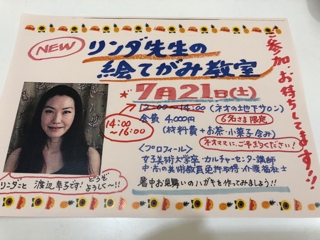 NEW
リンダ先生の
絵てがみ教室
7月21日(土)
12:00~14:00 (ネオの地下サロン)
14:00
~16:00
会費 4,000円 6名さま限定
(材料費+お茶・小菓子含み)
ネオママに、ご予約ください!
〈プロフィール〉
女子美術大学卒・カルチャーセンター講師
中・高の美術教員免許取得・介護福祉士
暑中お見舞いのハガキを作ってみましょう!!
リンダこと
どうぞ
よろしく〜!!
ご参加、お待ちしてます!!